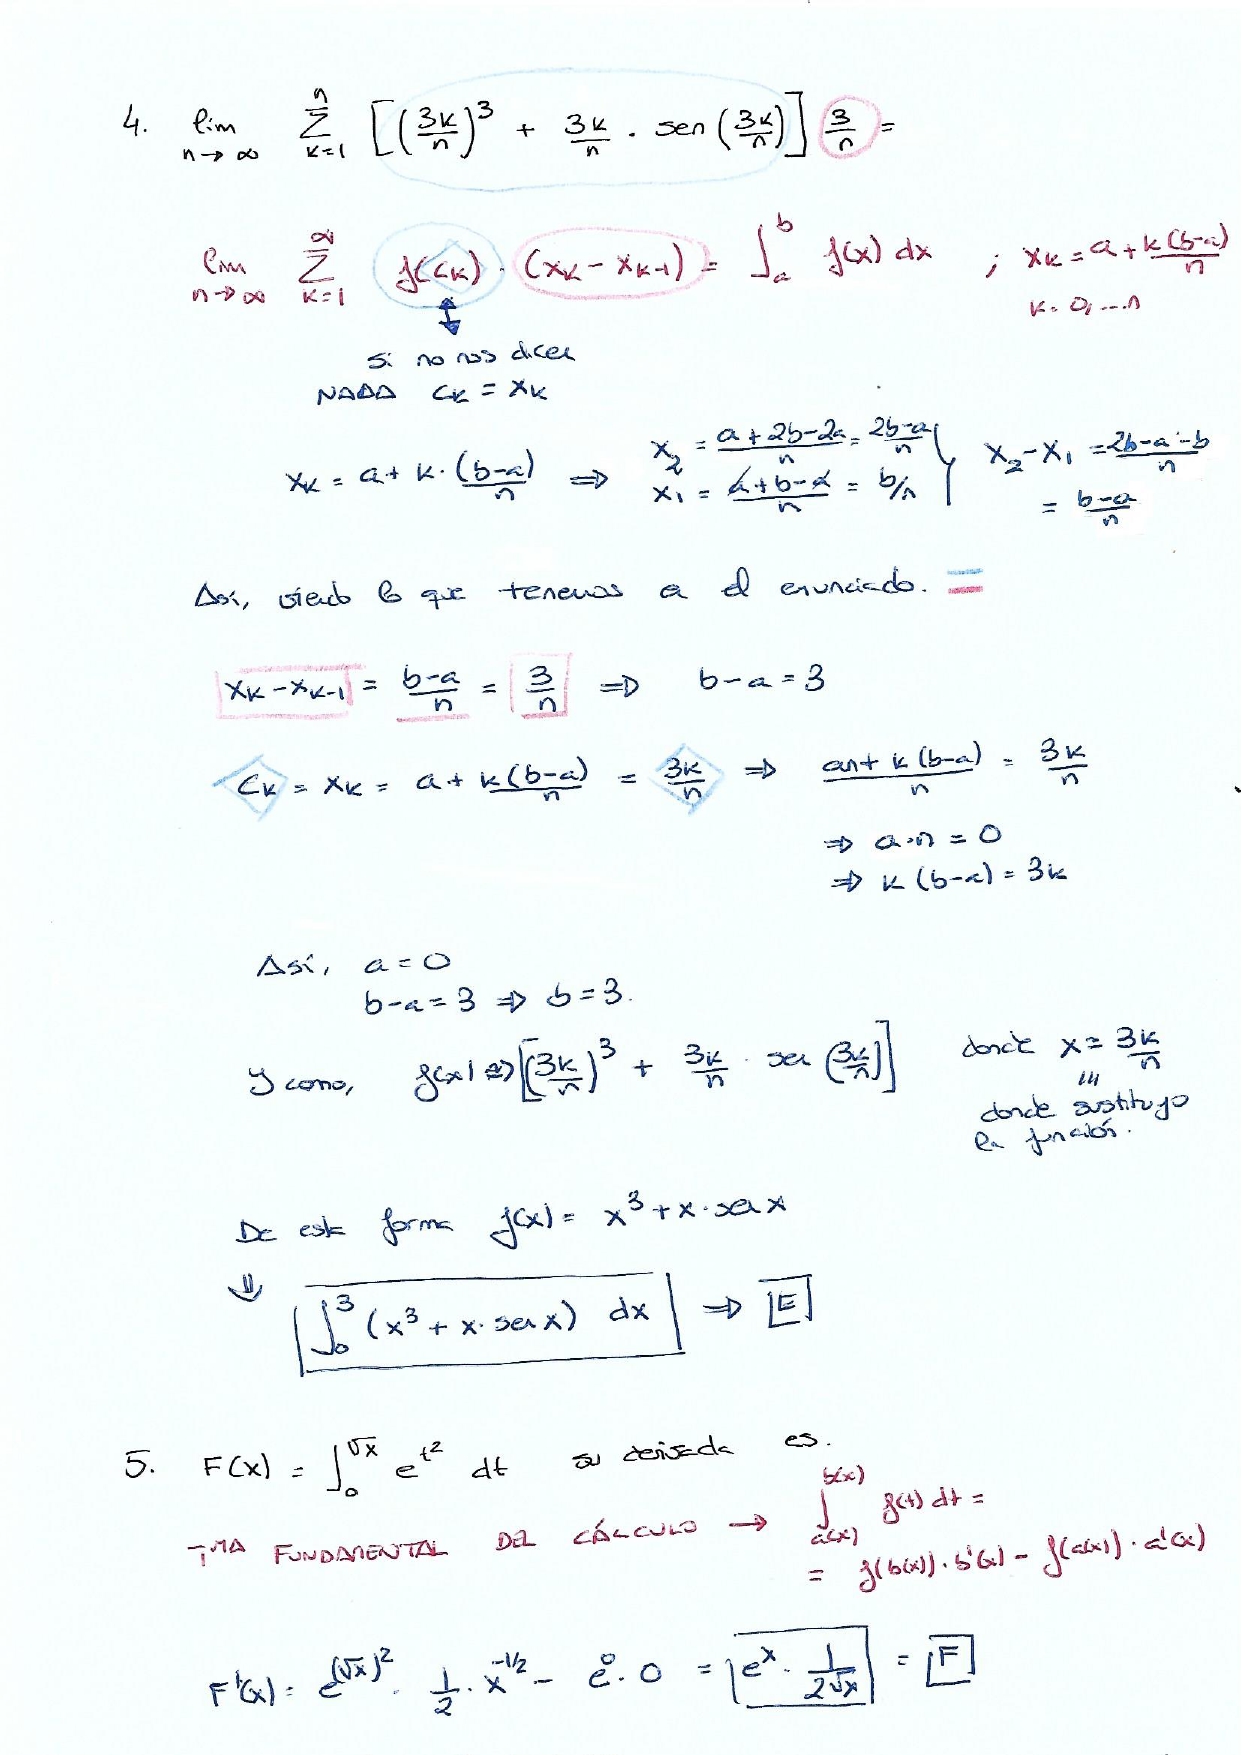 4. lim n→∞ Σ k=1 n [(3k/n)³ + 3k/n · sen (3k/n)] 3/n =
lim n→∞ Σ k=1 ∞ f(ck) · (xk - xk-1) = ∫ₐᵇ f(x) dx ; xk = a + k(b-a)/n
k = 0, ...n
Si no nos dicen
NADA ck = xk
xk = a + k · (b-a)/n ⇒ x₂ = (a+2b-2a)/n = (2b-a)/n
x₁ = (a+b-a)/n = b/n } x₂ - x₁ = (2b-a-b)/n
= (b-a)/n
Así, viendo lo que tenemos a el enunciado.
xk - xk-1 = (b-a)/n = 3/n ⇒ b-a = 3
ck = xk = a + k(b-a)/n = 3k/n ⇒ (an + k(b-a))/n = 3k/n
⇒ a·n = 0
⇒ k(b-a) = 3k
Así, a = 0
b-a = 3 ⇒ b = 3.
Y como, f(x) ⇔ [(3k/n)³ + 3k/n · sen (3k/n)] donde x = 3k/n
donde sustituyo
la función.
De esta forma f(x) = x³ + x · sen x
⇓ ∫₀³ (x³ + x · sen x) dx ⇒ E
5. F(x) = ∫₀^√x e^t² dt su derivada es.
TMA FUNDAMENTAL DEL CÁLCULO → ∫ a(x) b(x) f(t) dt =
= f(b(x)) · b'(x) - f(a(x)) · a'(x)
F'(x) = e^(√x)² · 1/2 · x^-1/2 - e⁰ · 0 = e^x · 1/(2√x) = F